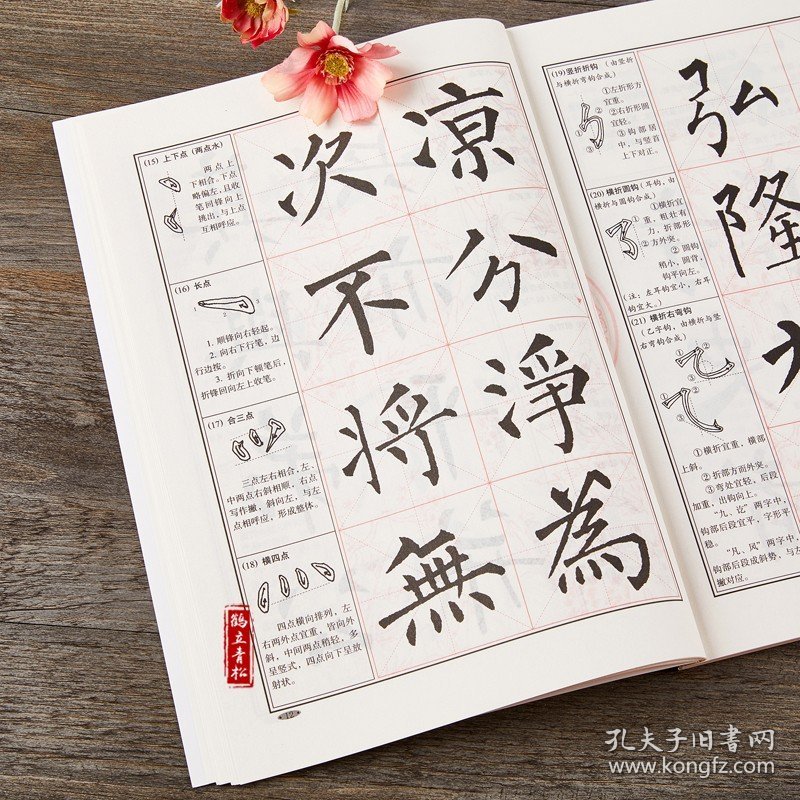 (15) 上下点 (两点水)
两点上
下相合。下点
略偏左，且收
笔回锋向上
挑出，与上点
互相呼应。
次 凉
(16) 长点
1 2 3
1. 顺锋向右轻起。
2. 向右下行笔，边
行边按。
3. 折向下顿笔后，
折锋回向左上收笔。
不 分
(17) 合三点
三点左右相合，左、
中两点右斜相顺，右点
写作撇，斜向左，与左
点相呼应，形成整体。
将 淨
(18) 横四点
四点横向排列，左
右两外点宜重，皆向外
斜，中间两点稍轻，多
呈竖式，四点向下呈放
射状。
無 為
(19) 竖折折钩 (由竖折
与横折弯钩合成)
①左折形方
宜重。
②右折形圆
宜轻。
③钩部居
中，与竖首
上下对正。
① ② ③
弘
(20) 横折圆钩 (耳钩，由
横折与圆钩合成)
①横折宜
重，粗壮有
力，折部形
方外突。
②圆钩
稍小，圆背，
钩平向左。
(注：左耳钩宜小，右耳
钩宜大。)
① ②
隆
(21) 横折右弯钩
(乙字钩，由横折与竖
右弯钩合成)
① ② ③
① ② ③
①横折宜重，横部
上斜。
②折部方而外突。
③弯处宜轻，后段
加重，出钩向上。
“九、讫”两字中，
钩部后段宜平，字形平
稳。
“凡、风”两字中，
钩部后段成斜势，与左
撇对应。
鹤立青松
孔夫子旧书网
www.kongfz.com